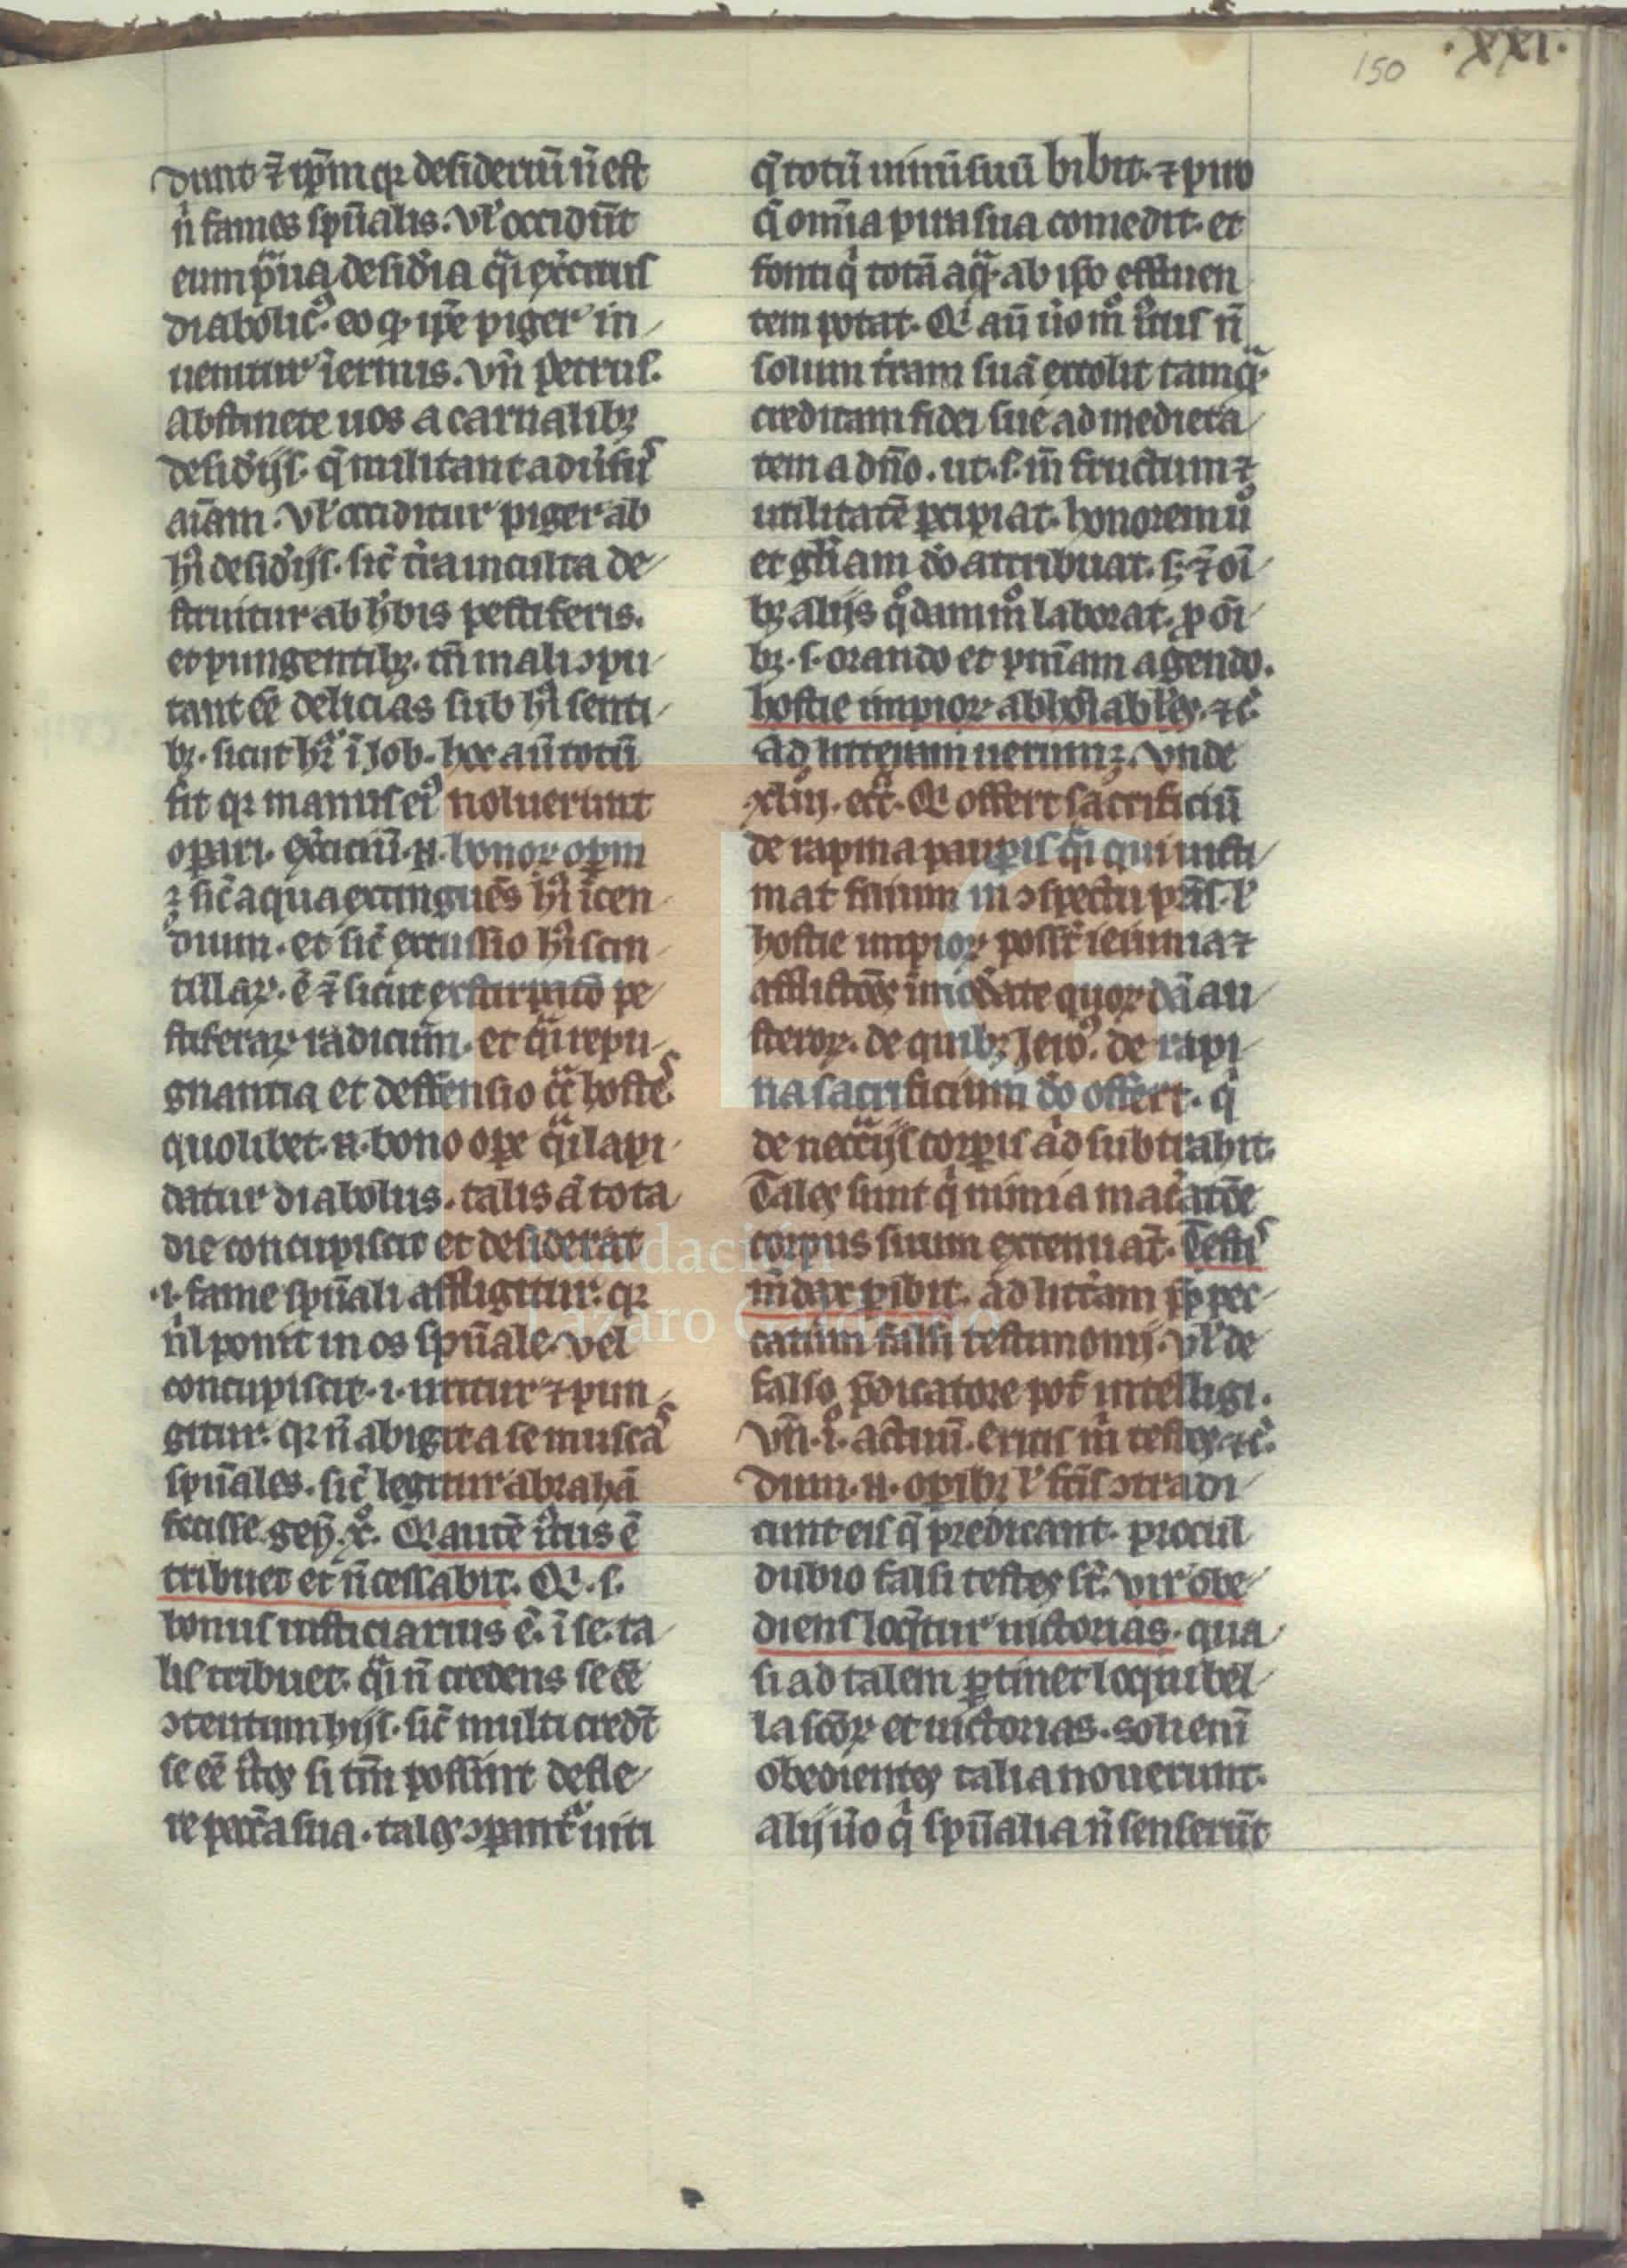 150 ·XXI·
dunt ⁊ ip̄m qꝛ desideriū n̄ est
n̄ fames spūalis. vl' occidūt
eum pͣua desid'ia qͣi ex'citus
diabolic⁹. eo ꝙ ip̄e piger in
uenitur īermis. vn̄ petrus.
Abstinete uos a carnalibꝫ
desid'ijs. q̄ militant adu'sus
aīam. vl' occiditur piger ab
hi' desid'ijs. sic̄ t'ra inculta de
struitur ab h'bis pestiferis.
et pungentibꝫ. tn̄ mali ꝯpu
tant eē delicias sub hi' senti
bꝫ. sicut hr̄ ī Job. hoc aūt totū
fit qꝛ manus ei⁹ noluerunt
oꝑari. ex'citiū .n. bonoꝝ oꝑm
ꝫ sic̄ aqua extinguēs hi' īcen
dium. et sic̄ excussio hi' scin
tillaꝝ. ē ⁊ sicut exstirpatō pe
stiferaꝝ radicum. et qͣi repu
gnantia et deffensio cͣ hostes.
quolibet .n. bono oꝑe qͣi lapi
datur diabolus. talis ā tota
die concupiscit et desiderat
.i. fame spūali affligitur. qꝛ
nl̄ ponit in os spūale. vel
concupiscit .i. uritur ⁊ pun
gitur. qꝛ n̄ abigit a se muscas
spūales. sic̄ legitur abrahā
fecisse gen̄. xͦ. Qi autē iustus ē
tribuet et n̄ cessabit. Qi .s.
bonus iusticiarius ē. ī se. ta
lis tribuet. qͣi n̄ credens se eē
ꝯtentum hijs. sic̄ multi credūt
se eē sc̄os si tm̄ possunt defle
re pec̄a sua. tales ꝯꝑant̄ uiti
q̄ totū uinū suū bibit. ⁊ piro
q̄ om̄ia pira sua comedit. et
fonti q' totā aqͣ ab ip̄o effluen
tem potat. Qi aū uo mͦ iustus n̄
solum t'ram suā excolit tamqͣ
creditam fidei sue ad medieta
tem a dn̄o. ut .s. in fructum ⁊
utilitatē ꝑcipiat. honorem uͦ
et gl'iam dō attribuat. sꝫ ⁊ oī
bꝫ alijs qͦdam mͦ laborat. ꝓ oī
bꝫ .s. orando et pn̄iam agendo.
hostie impioꝝ abhoīabiles ⁊c̄.
Ad litteram uerum ꝫ. vnde
xliiij. ecc̄. Qi offert sacrificiū
de rapina pauꝑis qͣi qui uicti
mat filium in ꝯspectu pr̄is. l'
hostie impioꝝ posst' ieiunia ⁊
afflictōes īmod'ate quoꝝdā au
steroꝝ. de quibꝫ Jero⁹. de rapi
na sacrificium dō offert. q'
de necc̄ijs corꝑis ad subtrahit.
Tales sunt q' nimia mac'atōe
corpus suum extenuāt. Testis
m̄dax ꝑibit. ad litt'am ꝓ pec
catum falsi testimonij. vl' de
falso p̄dicatore pot̄ intelligi.
vn̄ .i. actuū. Eritis m̄ testes ⁊c̄.
dum .n. oꝑibꝫ l' fc̄is ꝯtradi
cunt eis q̄ predicant. procul
dubio falsi testes sūt. vir obe
diens loq̄tur uictorias. qua
si ad talem ꝑtinet loqui bel
la sc̄oꝝ et uictorias. Soli enī
obedientes talia nouerunt.
alij uo q' spūalia n̄ senserūt
Fundación
Lázaro Galdiano